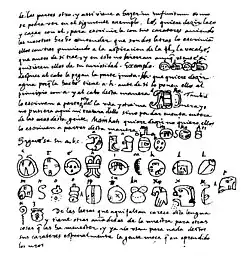 de las partes otro, y assi viene a hazer in infinitum como
se podra ver en el siguiente exemplo. Lé, quiere dezir laço
y caçar con el, para escrivirle con sus carateres aviendo
les nosotros hecho entender que son dos letras lo escrivian
ellos con tres puniendo a la aspiracion de la l, la vocal e,
que antes de si trae, y en esto no hierran aunque
quisieren ellos de su curiosidad. Exemplo.
despues al cabo le pegan la parte junta. Ha que quiere dezir
agua porque la hache tiene a, h, antes de si la ponen ellos al
principio con a y al cabo desta manera Tambie
lo escriven a partes de la una y otra manera yo no
pusiera aqui ni tratara dello sino por dar cuenta entera
de las cosas desta gente. Ma in kati quiere dezir no quiero ellos
lo escriven a partes desta manera
Siguese su a, b, c.
De las letras que aqui faltan carece esta lengua
y tiene otras añadidas de la nuestra para otras
cosas que las ha menester, y ya no usan para nada destos
sus carateres especialmente la gente moça que an aprendido
los nros